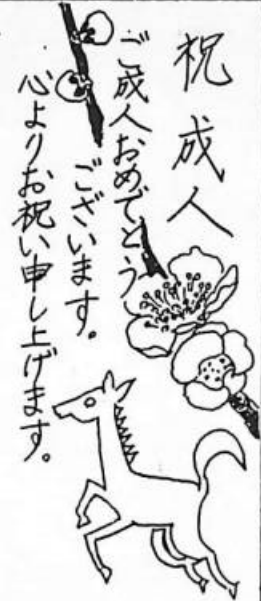 祝成人
ご成人おめでとう
ございます。
心よりお祝い申し上げます。